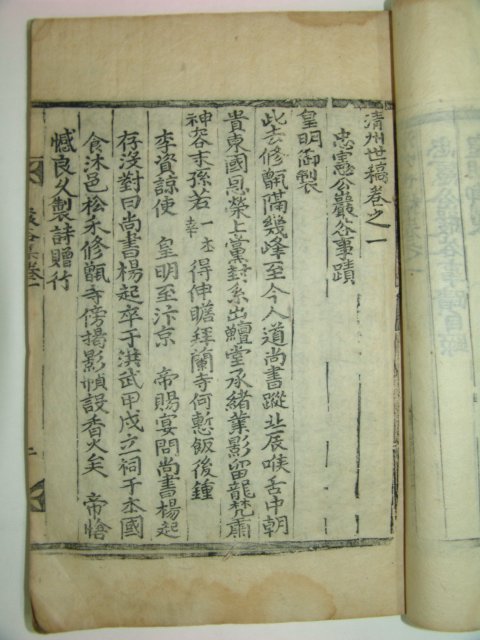 清州世稿卷之一
忠憲公巖谷事蹟
皇明御製
此去修甑隔幾峰至今人道尚書蹤北辰喉舌中朝
貴東國恩榮上黨封系出鱣堂承緒業影留龍梵肅
神容末孫若一本幸得伸瞻拜蘭寺何慙飯後鍾
李資諒使 皇明至汴京 帝賜宴問尚書楊起
存沒對曰尚書楊起卒于洪武甲戌立祠于本國
食沐邑松永修甑寺傍揭影幀設香火矣 帝愴
憾良久製詩贈行
谷集卷一